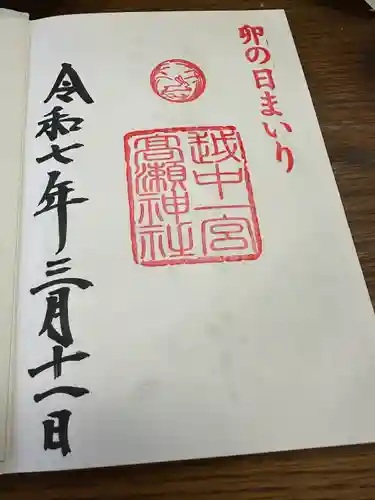 卯の日まいり
越中一宮
高瀬神社
令和七年三月十一日